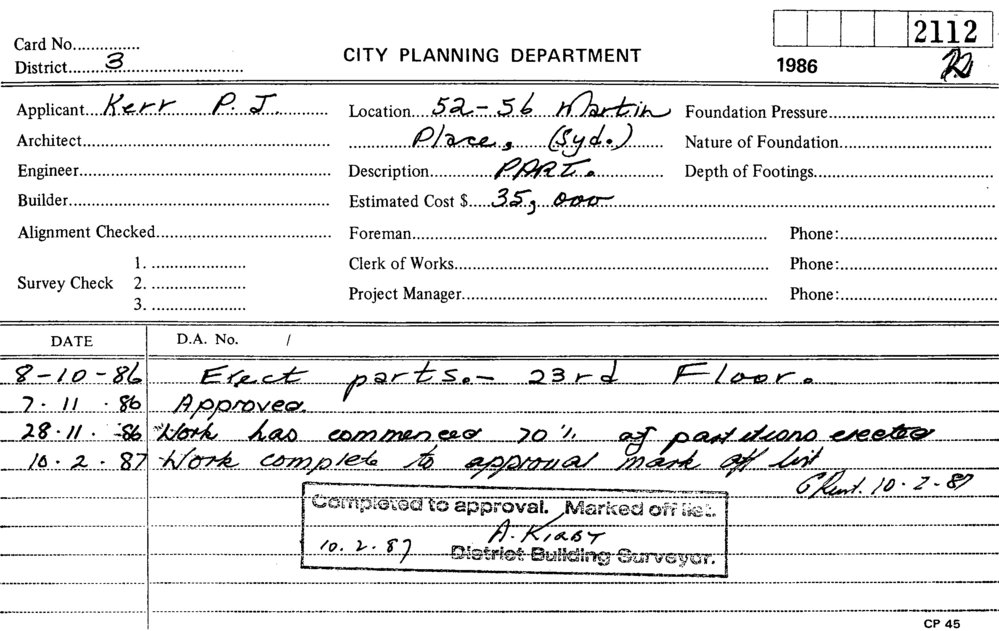 2112
Card No...............
District........3..............................
CITY PLANNING DEPARTMENT
1986
Applicant Kerr P. J.
Location 52-56 Martin
Foundation Pressure
Architect
Place, (Syd.)
Nature of Foundation
Engineer
Description PART.
Depth of Footings
Builder
Estimated Cost $ 35,000
Alignment Checked
Foreman
Phone:
Survey Check
1.
2.
3.
Clerk of Works
Phone:
Project Manager
Phone:
DATE
D.A. No. /
8-10-86 Erect parts.- 23rd Floor.
7.11.86 Approved.
28.11.86 Work has commenced 70% of partitions erected
10.2.87 Work complete to approval mark off list
10-2-87
Completed to approval. Marked off list.
A. KIRBY
10.2.87 District Building Surveyor.
CP 45